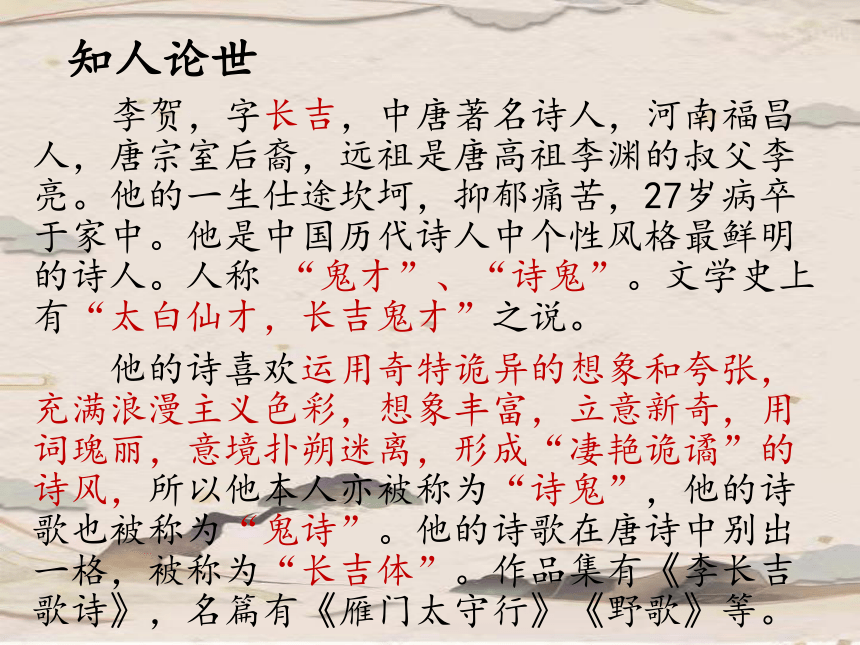 知人论世
李贺，字长吉，中唐著名诗人，河南福昌
人，唐宗室后裔，远祖是唐高祖李渊的叔父李
亮。他的一生仕途坎坷，抑郁痛苦，27岁病卒
于家中。他是中国历代诗人中个性风格最鲜明
的诗人。人称 “鬼才”、“诗鬼”。文学史上
有“太白仙才，长吉鬼才”之说。
他的诗喜欢运用奇特诡异的想象和夸张，
充满浪漫主义色彩，想象丰富，立意新奇，用
词瑰丽，意境扑朔迷离，形成“凄艳诡谲”的
诗风，所以他本人亦被称为“诗鬼”，他的诗
歌也被称为“鬼诗”。他的诗歌在唐诗中别出
一格，被称为“长吉体”。作品集有《李长吉
歌诗》，名篇有《雁门太守行》《野歌》等。